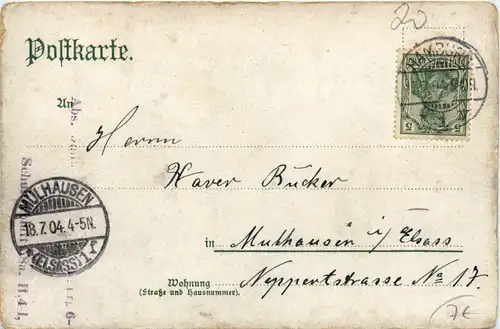 20
Postkarte.
HAMBURG
5 5
An
Abs.
Herrn
Xaver Bücker
MÜLHAUSEN
18.7.04.4-5N.
(ELSASS) 1
in Mulhausen i/ Elsass
Wohnung
(Straße und Hausnummer).
Neppertstrasse No 17.
7€